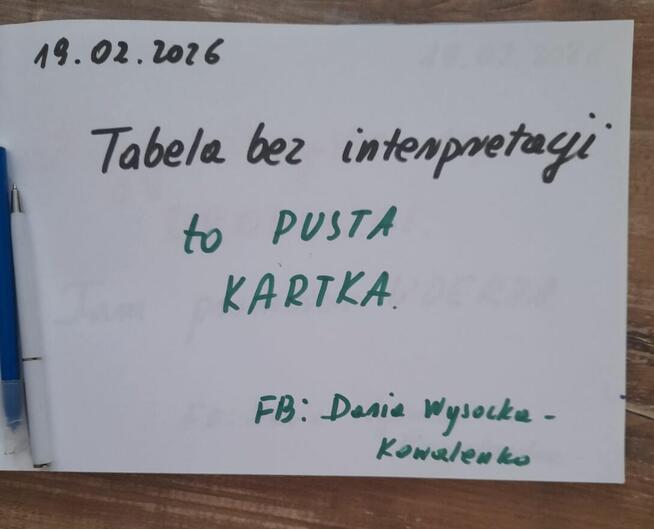 19.02.2026
Tabela bez interpretacji
to PUSTA
KARTKA.
FB: Daria Wysocka-
Kowalenko